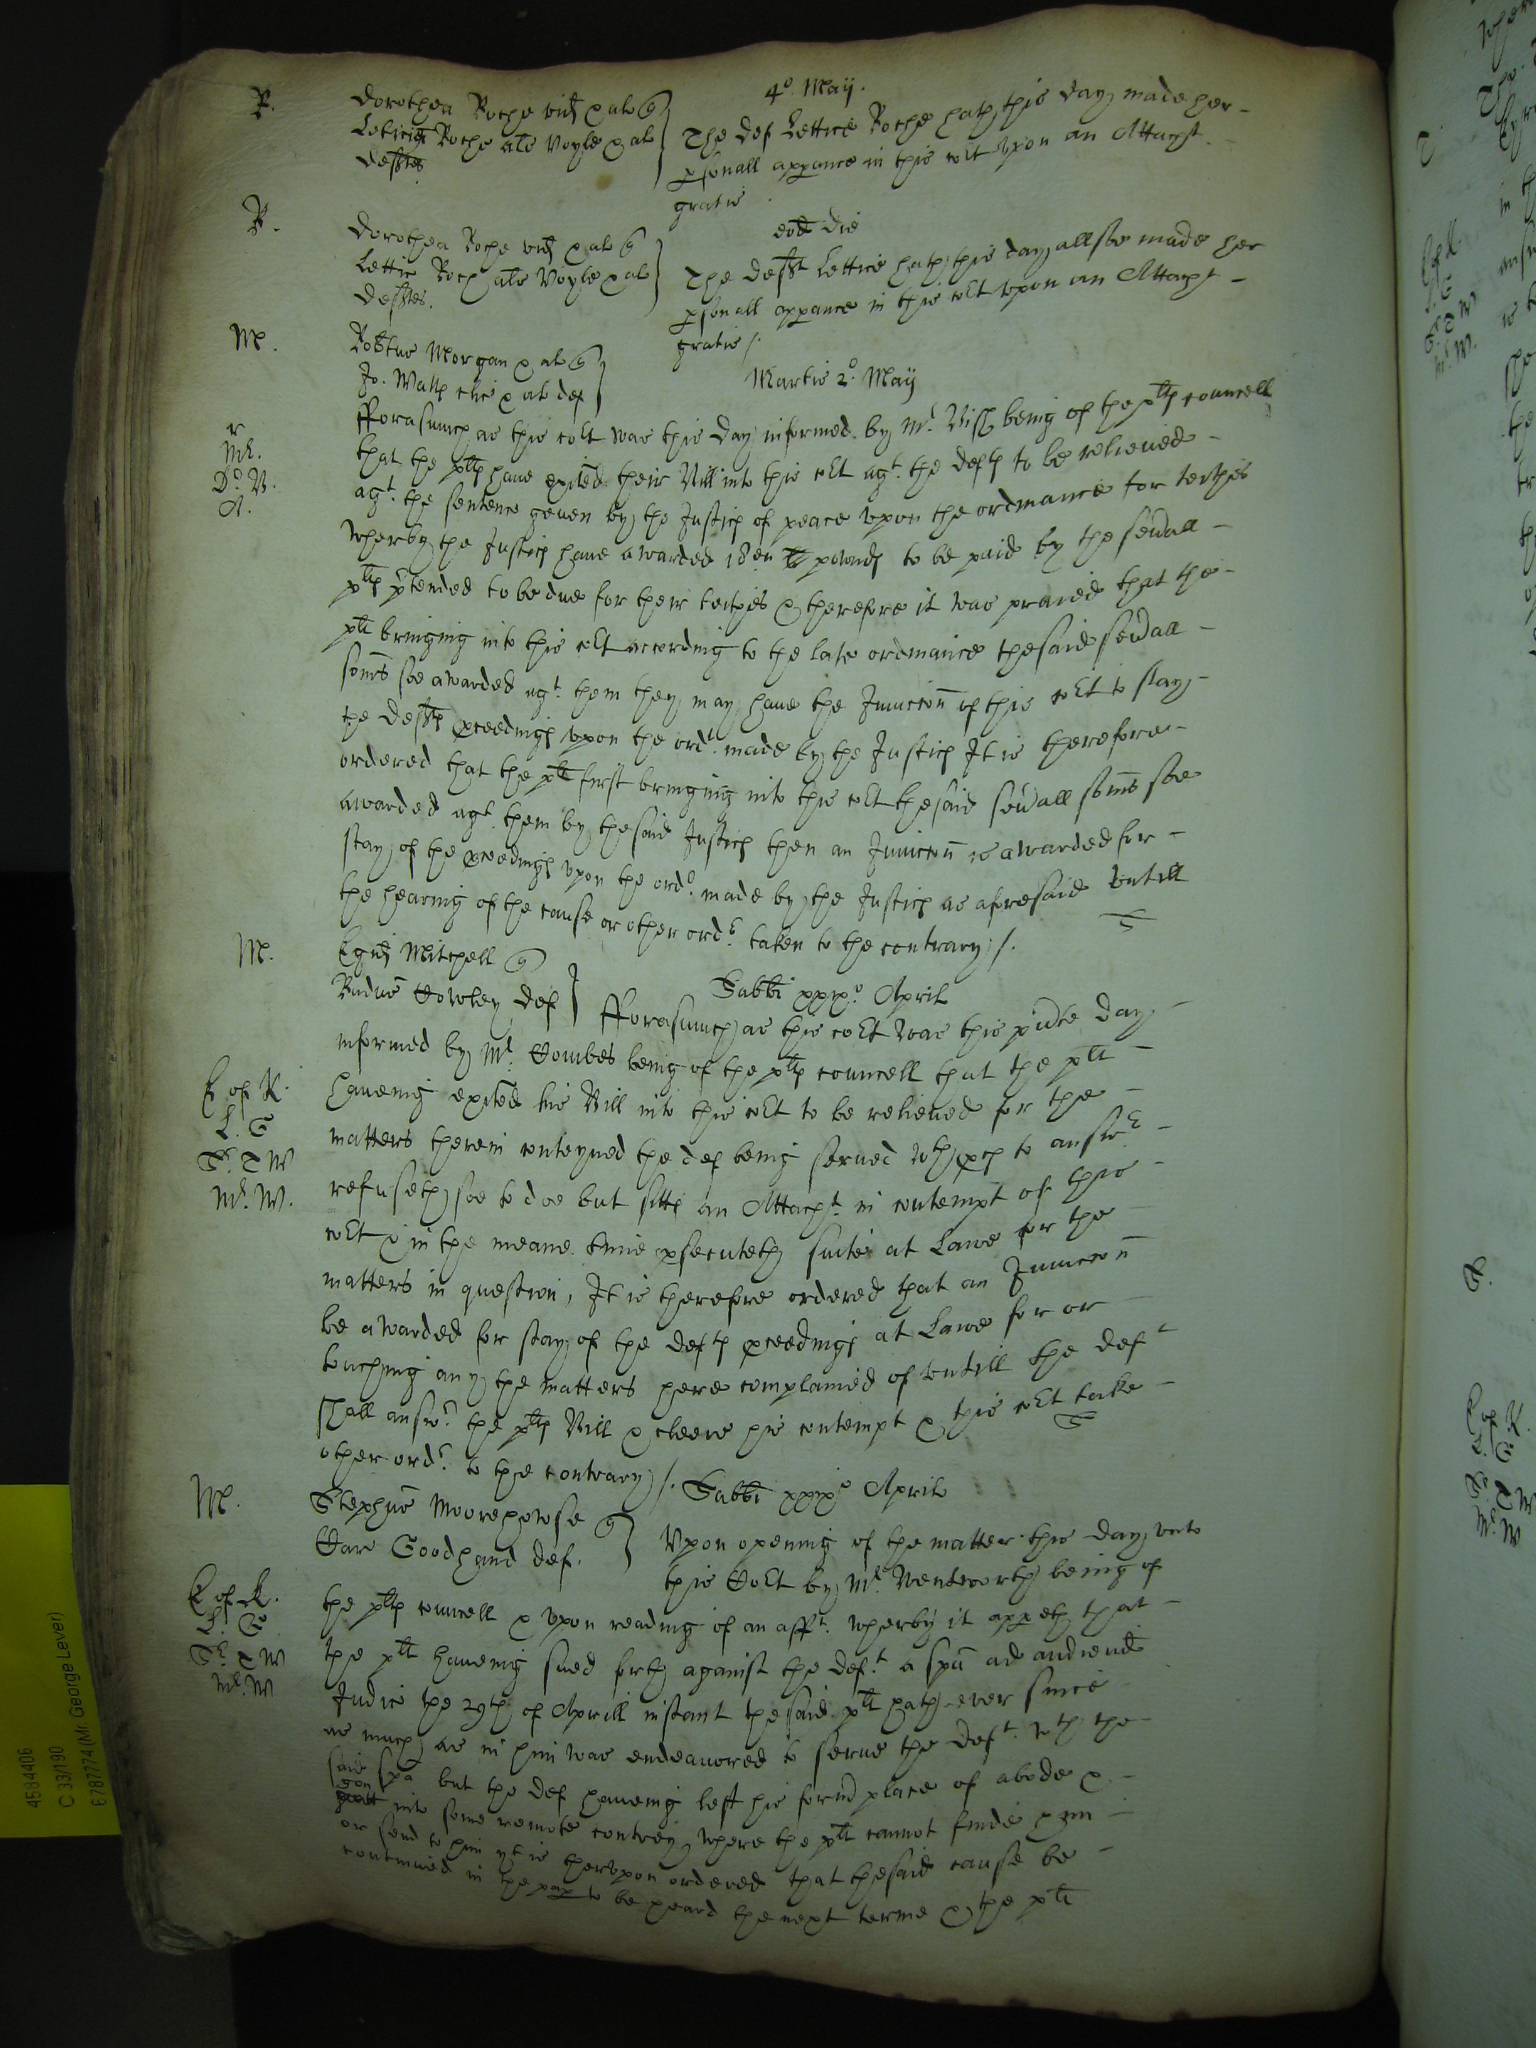 4o. May.
R.
Dorothea Roche vid & al q
Leticia Roche als Voyle & al
defftes
The def Lettice Roche hath this day made her
psonall appance in this Cort vpon an Attacht
gratis
R.
eod die
Dorothea Roche vid & al q
Lettic Roch als Voyle & al
defftes.
The defft Lettice hath this day allsoe made her
psonall appance in this cort vpon an Attacht
gratis /.
M.
Robtus Morgan & al q
Jo. Wall clic & al def
Martis 2o. May
fforasmuch as this cort was this day informed by Mr. being of the plts councell
r
Mr.
Dr. B.
A.
that the plts haue exited their Bill into this cort agt. the defts to be relieued
agt. the sentence geuen by the Justics of peace vpon the ordinance for teithes
wherby the Justics haue awarded pownds to be paid by the seuall
plts ptended to be due for their teithes & therefore it was praied that the
plt bringing into this cort according to the late ordinance the said seuall
soms soe awarded agt. them they may haue the Iniuccon of this cort to stay
the deffts pceedings vpon the ordr. made by the Justics It is therefore
ordered that the plt first bringing into this cort the said seuall soms soe
awarded agt. them by the said Justics then an Iniuccon is awarded for
stay of the pceedings vpon the ordr. made by the Justics as aforesaid vntill
the hearing of the cause or other ordr. taken to the contrary /.
M.
Egid Mitchell q
Radus Cowley def
Sabbi xxixo. April
fforasmuch as this cort was this pnte day
informed by Mr. Combes being of the plts councell that the plt
E of K.
L. G
Sr. T W
Mr. W.
haueing exited his Bill into this cort to be relieued for the
matters therein conteyned the def being serued wth pcs to answr.
refuseth soe to doe but sitts an Attacht. in contempt of this
cort & in the meane time psecuteth suite at Lawe for the
matters in question, It is therefore ordered that an Iniuccon
be awarded for stay of the defts pceedings at Lawe for or
touching any the matters here complained of vntill the deft
shall answr. the plts Bill & cleere his contempt & this cort take
other ordr. to the contrary /.
M.
Sabbi xxixo April
Stephus Moorehowse q
Car Goodhand def.
Vpon opening of the matter this day vnto
this Cort by Mr. Wentworth being of
E of K.
L. G
Sr. T W
Mr. W
the plts councell & vpon reading of an afft. wherby it appeth that
the plt haueing sued forth against the deft. a spa ad audiend
Judic the 29th of Aprill instant the said plt hath ever since
as much as in him was endeauored to serue the deft. wth the
said spa but the def haueing left his formd place of abode &
gon into some remote contrey where the plt cannot finde him
or send to him yt is thervpon ordered that the said cause be
continued in the pap to be heard the next terme & the plt
4584406
C 33/190
E787774 (Mr. George Lever)
E of K.
L. G
Sr. T W
Mr. W